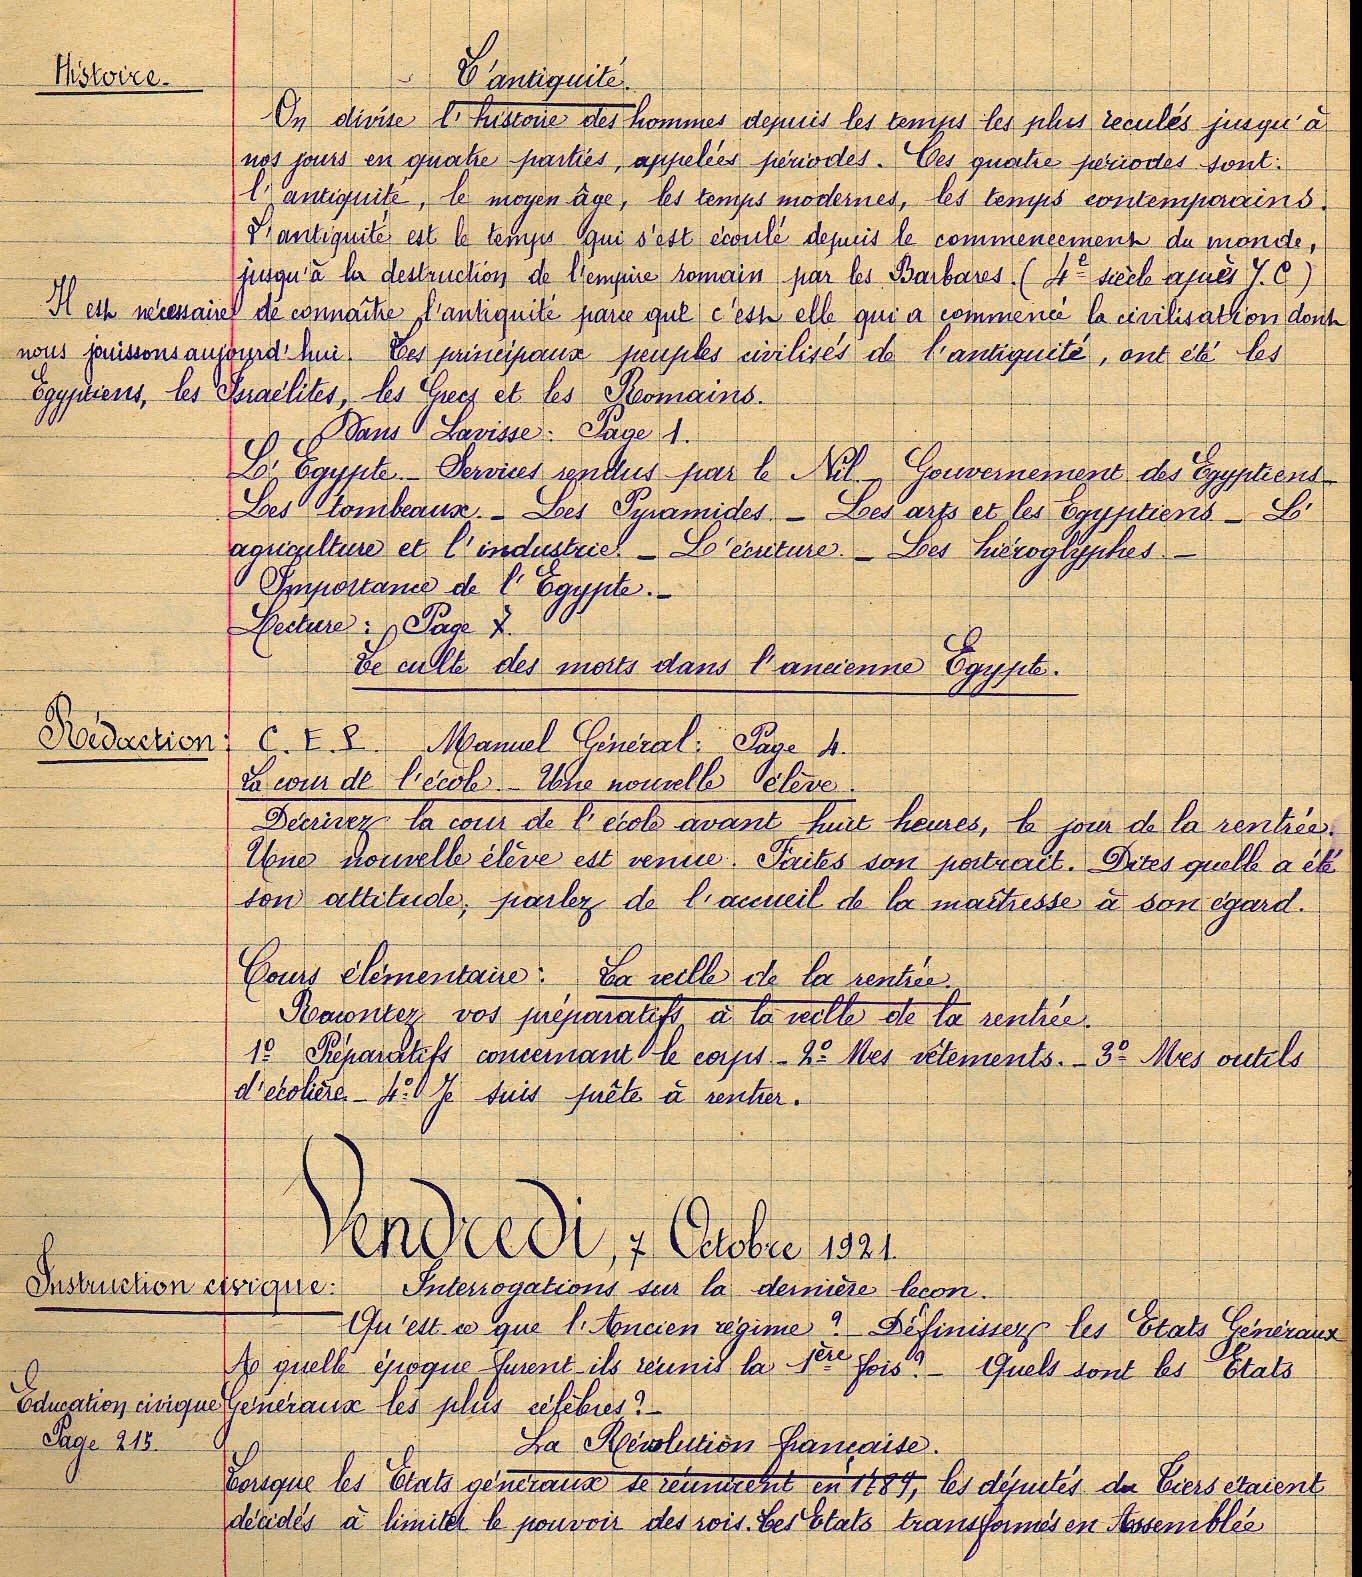 Histoire. L'antiquité.
On divise l'histoire des hommes depuis les temps les plus reculés jusqu'à
nos jours en quatre parties, appelées périodes. Ces quatre périodes sont:
l'antiquité, le moyen âge, les temps modernes, les temps contemporains.
L'antiquité est le temps qui s'est écoulé depuis le commencement du monde,
jusqu'à la destruction de l'empire romain par les Barbares. (4e siècle après J.C)
Il est nécessaire de connaître l'antiquité parce que c'est elle qui a commencé la civilisation dont
nous jouissons aujourd'hui. Les principaux peuples civilisés de l'antiquité, ont été les
Egyptiens, les Israélites, les Grecs et les Romains.
Dans Lavisse: Page 1.
L'Egypte._ Services rendus par le Nil._ Gouvernement des Egyptiens_
Les tombeaux._ Les Pyramides._ Les arts et les Egyptiens_ L'
agriculture et l'industrie._ L'écriture._ Les hiéroglyphes._
Importance de l'Egypte._
Lecture: Page 7.
Le culte des morts dans l'ancienne Egypte.
Rédaction: C.E.P. Manuel Général: Page 4.
La cour de l'école._ Une nouvelle élève.
Décrivez la cour de l'école avant huit heures, le jour de la rentrée.
Une nouvelle élève est venue. Faites son portrait. Dites quelle a été
son attitude; parlez de l'accueil de la maîtresse à son égard.
Cours élémentaire: La veille de la rentrée.
Racontez vos préparatifs à la veille de la rentrée.
1º Préparatifs concernant le corps_2º Mes vêtements._3º Mes outils
d'écolière._4º Je suis prête à rentrer.
Vendredi, 7 Octobre 1921.
Instruction civique: Interrogations sur la dernière leçon.
Qu'est-ce que l'Ancien régime?_ Définissez les Etats Généraux
A quelle époque furent-ils réunis la 1ère fois?_ Quels sont les Etats
Education civique Généraux les plus célèbres?_
Page 215. La Révolution française.
Lorsque les Etats généraux se réunirent en 1789, les députés du Tiers étaient
décidés à limiter le pouvoir des rois. Les Etats transformés en Assemblée